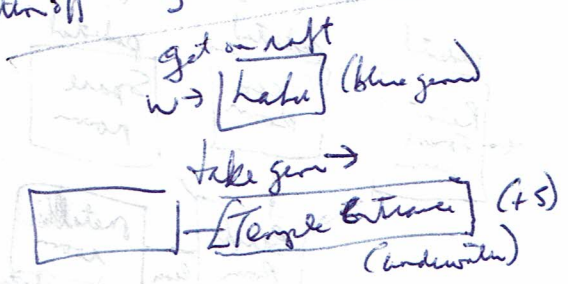 get on raft
W → Lake (blue gem)
take gem →
Temple Entrance (+5)
(underwater)